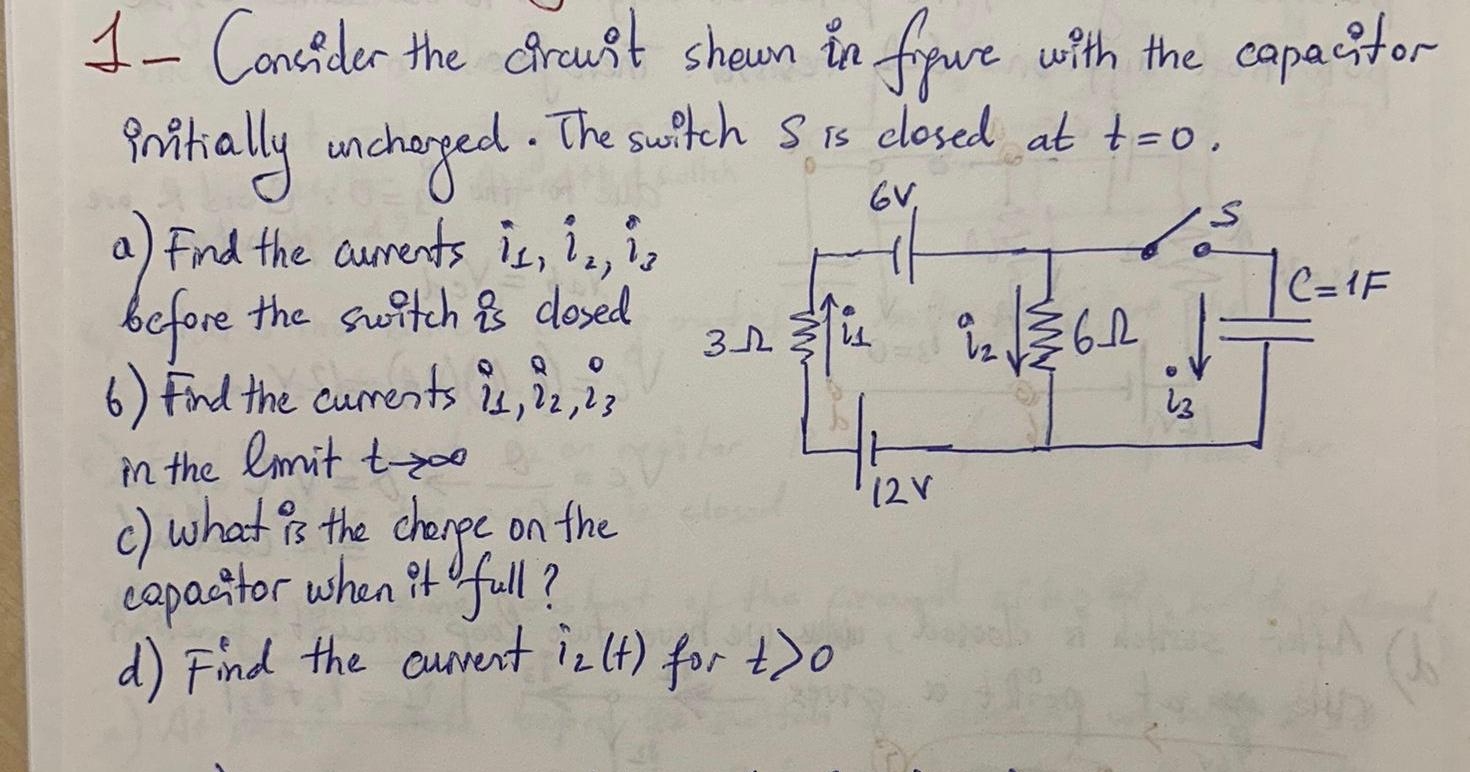 1- Consider the circuit shown in figure with the capacitor
initially uncharged. The switch S is closed at t=0.
a) Find the currents i₁, i₂, i₃
before the switch is closed
b) Find the currents i₁, i₂, i₃
in the limit t→∞
c) What is the charge on the
capacitor when it full?
d) Find the current i₂(t) for t>0
6V
S
C=1F
3Ω
i₁
i₂
6Ω
i₃
12V